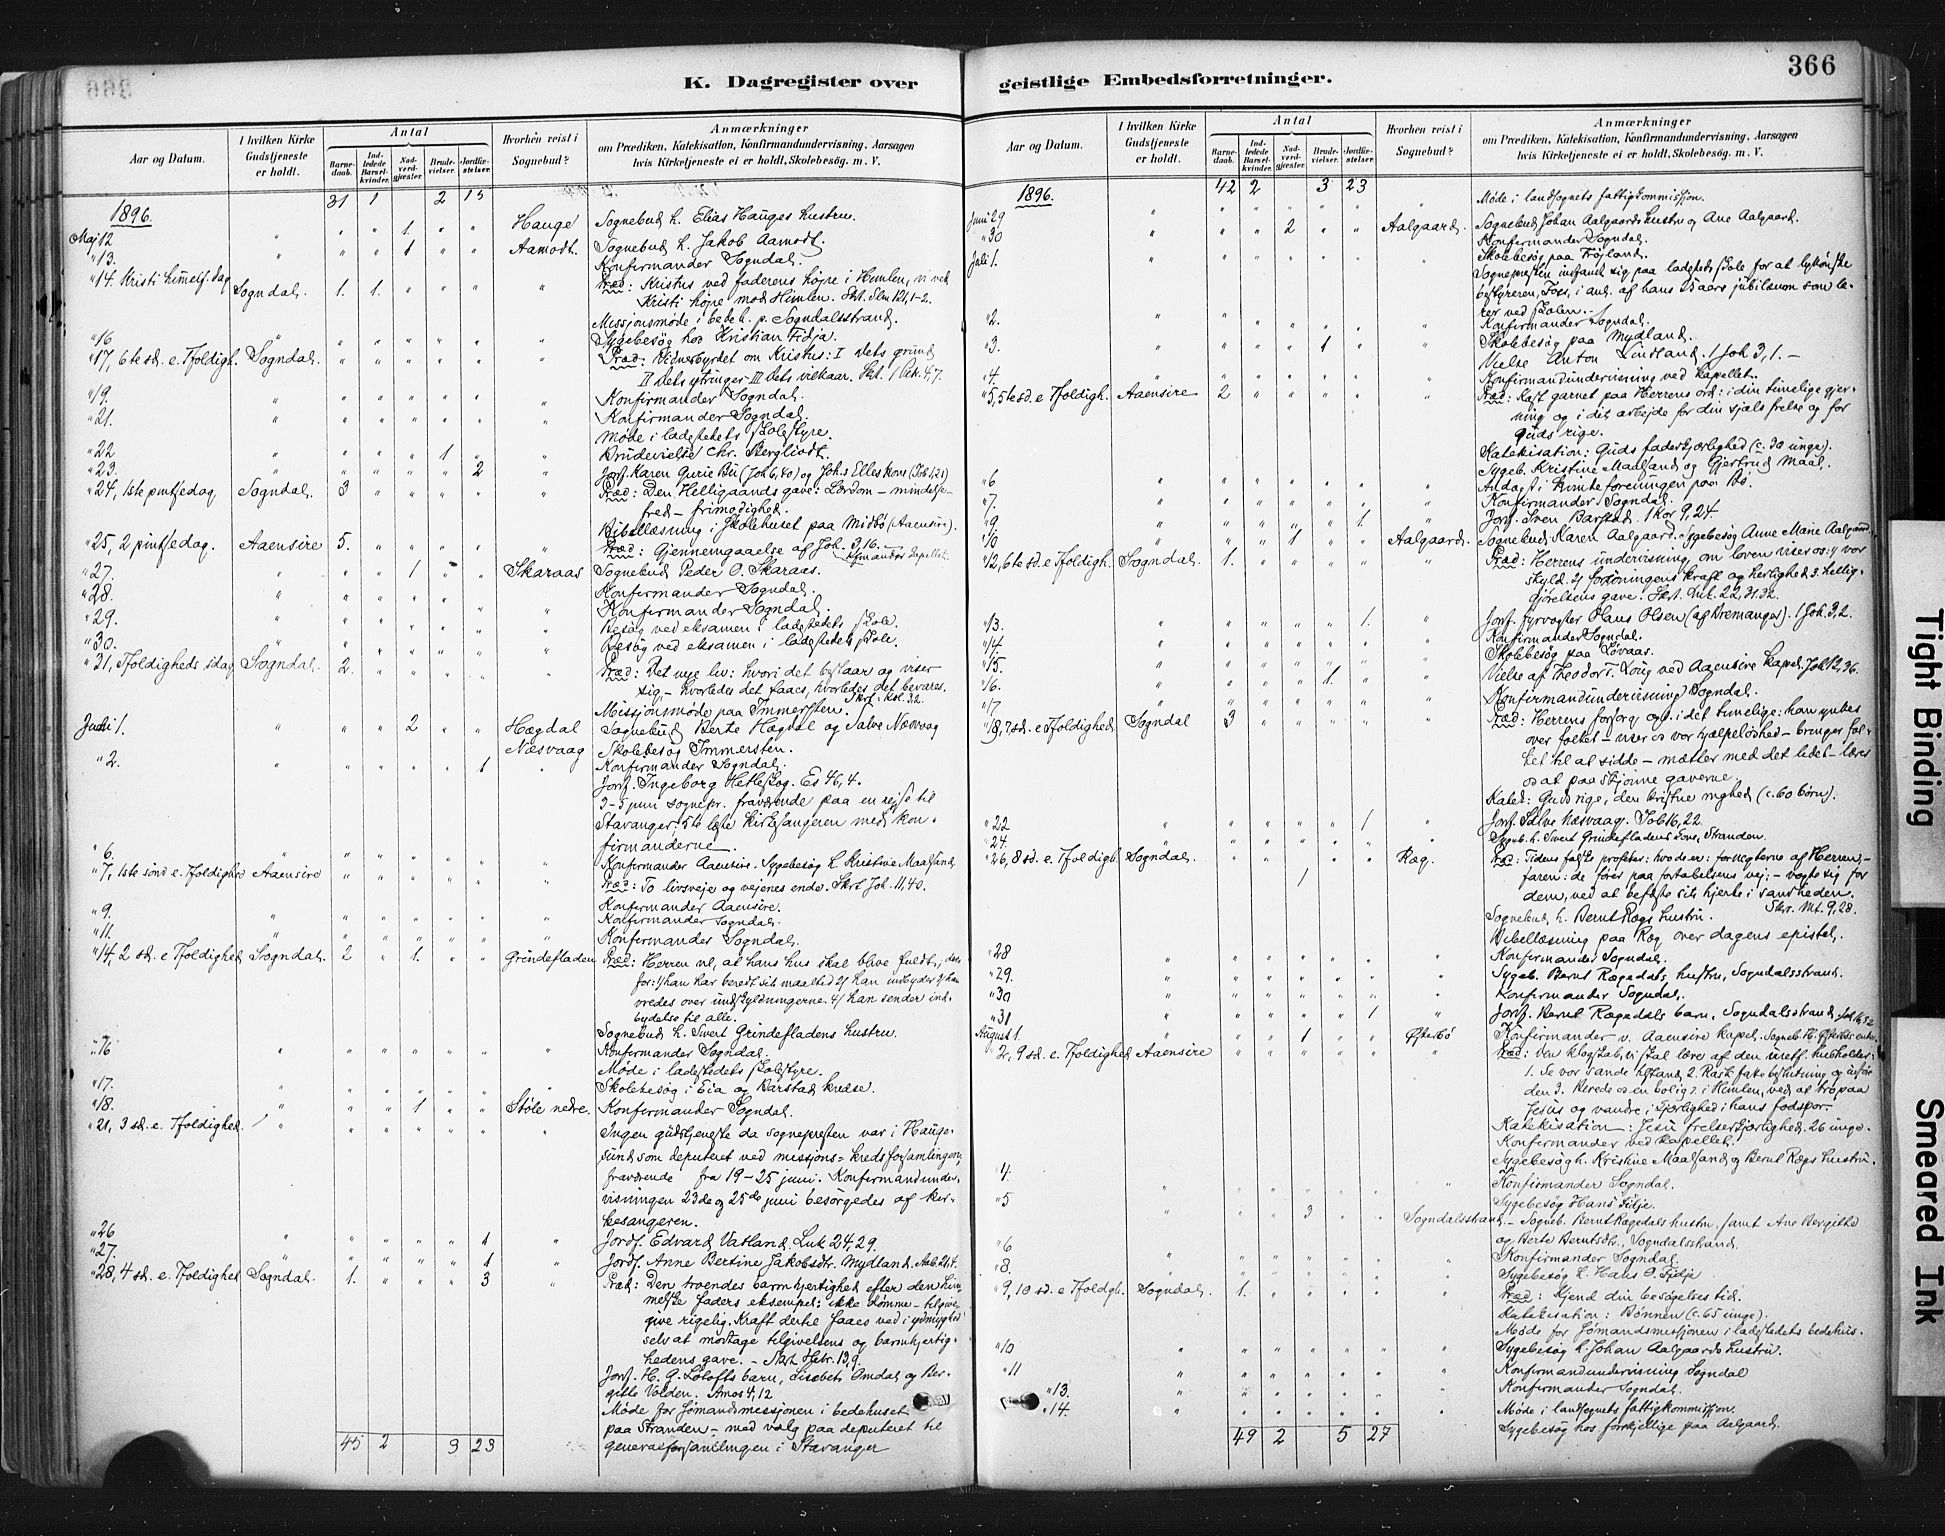 366
K. Dagregister over
geistlige Embedsforretninger.
Aar og Datum.
I hvilken Kirke Gudstjeneste er holdt.
Antal
Barnedaab.
Indledede Barselkvinder.
Nadverdgjester.
Brudevielser.
Jordfæstelser.
Hvorhen reist i Sognebud?
Anmærkninger
om Prædiken, Katekisation, Konfirmandundervisning, Aarsagen
hvis Kirketjeneste ei er holdt, Skolebesøg. m. V.
31 1 2 15
1896.
Maj 12 " " " 1. " " Hauge Sognebud h. Elias Hauges hustru.
"13. " " " 1 " " Aamodt. Sognebud h. Jakob Aamodt.
Konfirmander Sogndal.
"14. Kristi himelf. dag Sogndal. 1. 1. " " " " Præd: Kristus ved faderens højre i Himlen, vi ved
Kristi højre mod Himlen.
Missjonsmøde i bedeh. p. Sogndalsstrand.
"16 Sygebesøg hos Kristian Fidja.
"17, 6te sd. e. Sogndal. Præd: Vidnesbyrdet om Kristus: I dets grund
II Dets ytringer III Dets vilkaar.
"19. Konfirmander Sogndal.
"21. Konfirmander Sogndal.
Møde i ladestedets skolestyre.
"22 1 Brudevielse Chr. Berglivdt.
"23. 2 Jorf. Karen Gurie Bu (Joh 6,40) og
"24, 1ste pintsedag, Sogndal. 3 Præd: Den Helligaands gave: Lærdom – mindelse
fred – frimodighed.
Bibellæsning i Skolehuset paa Midbø (Aaensire).
"25, 2 pintsedag. Aaensire 5. Præd: Gjennemgaaelse af Joh. 3,16.
"27. 1 Skaraas Sognebud Peder O. Skaraas.
"28. Konfirmander Sogndal.
"29. Konfirmander Sogndal.
Besøg ved eksamen i ladestedets skole.
"30. Besøg ved eksamen i ladestedets skole.
"31, Tfoldigheds sdag Sogndal. 2. Præd: Det nye liv: hvori det bestaar og viser
sig – hvorledes det faaes, hvorledes det bevares.
Missjonsmøde paa Immersten.
Juni 1. 2 Hægdal Sognebud Berte Hægdal og Salve Næsvaag
Næsvaag Skolebesøg Immersten.
"2. 1 Konfirmander Sogndal.
Jorf. Ingeborg Hetleskog. Es 46,4.
3–5 juni sognepr. fraværende paa en rejse til
Stavanger; 5te læste kirkesangeren med kon-
firmanderne.
"6. Konfirmander Aaensire. Sygebesøg h. Kristine Maalsand
"7, 1ste sønd e. Tfoldighed Aaensire Præd: To livsveje og vejenes ende. Skrt. Joh. 11,40.
"9. Konfirmander Aaensire.
Konfirmander Sogndal.
"11. Konfirmander Sogndal.
"14, 2 sd. e Tfoldighed Sogndal. 2 " 1. " " Grindefladen Præd: Herren vl, at hans hus skal blive fuldt, der-
for: 1/ han har beredt sit maaltid 2/ han indbyder 3/ han
vredes over undskyldningerne. 4/ han sender ind-
bydelse til alle.
Sognebud h. Sivert Grindefladens hustru.
"16 Konfirmander Sogndal.
Møde i ladestedets skolestyre.
"17. Skolebesøg i Eia og Barstad kredse.
"18. 1 Støle nedre. Konfirmander Sogndal.
"21, 3 sd. e. Tfoldighed. Ingen gudstjeneste da sognepresten var i Hauge-
sund som deputeret ved missjons-kredsforsamlingen,
fraværende fra 19–25 juni. Konfirmandunder-
visningen 23de og 25de juni besørgedes af kir-
kesangeren.
"26 1 Jordf. Edvard Vatland. Luk 24,29.
"27. 1 Jordf. Anne Bertine Jakobsdtr. Mydland. Aab. 21,4.
"28, 4 sd. e. Tfoldighed Sogndal. 1. 3 Præd: Den troendes barmhjertighed efter den him-
melske faders eksempel: ikke dømme – tilgive
give rigelig. Kraft dertil faaes ved i ydmyghed
selv at modtage tilgivelsens og barmhjertig-
hedens gave. – Hebr. 13,9.
Jorf. H. G. Løtofts barn, Lisabet Omdal og Ber-
gitte Volden. Amos 4,12
Møde for Sømandsmissjonen i bedehuset
paa Stranden – med valg paa deputeret til
generalforsamlingen i Stavanger
45 2 3 23
Aar og Datum.
I hvilken Kirke Gudstjeneste er holdt.
Antal
Barnedaab.
Indledede Barselkvinder.
Nadverdgjester.
Brudevielser.
Jordfæstelser.
Hvorhen reist i Sognebud?
Anmærkninger
om Prædiken, Katekisation, Konfirmandundervisning, Aarsagen
hvis Kirketjeneste ei er holdt, Skolebesøg. m. V.
42 2 3 23
1896.
Juni 29 Møde i landsognets fattigkommissjon.
"30 2 Aalgaard. Sognebud Johan Aalgaards hustru og Ane Aalgaard.
Konfirmander Sogndal.
Juli 1. Skolebesøg paa Frøyland.
Sognepresten indfandt sig paa ladestedsskole for at lykønske
bestyreren, Foss, i anl. af hans 25 aars jubilæum som læ-
rer ved skolen.
"2. Konfirmander Sogndal.
"3. 1 Skolebesøg paa Mydland.
Vielse Anton Lindland. 1 Joh 3,1. –
"4. Konfirmandundervisning ved kapellet.
"5, 5te sd. e Tfoldigh. Aaensire 2 Præd: Kast garnet paa Herrens ord: i din timelige gjer-
ning og i dit arbejde for din sjæls frelse og for
Guds rige.
Katekisation: Guds faderkjærlighed (c. 30 unge).
Sygeb. Kristine Maalsand og Gjertrud Maal.
"6 Andagt i kvindeforeningen paa Bø.
"7. Konfirmander Sogndal.
"9. 1. Jorf. Sven Barstad. 1 Kor 9,24
"10 1 Aalgaard. Sognebud Karen Aalgaard. Sygebesøg Anne Marie Aalgaard
"12, 6te sd. e Tfoldigh. Sogndal. 1. Præd: Herrens undervisning om loven viser os: 1/ vor
skyld 2/ forsoningens kraft og herlighed 3. hellig-
gjørelsens gave.
"13. 1. Jorf. fyrvogter Hans Olsen (af Bremanger). 1 Joh. 3,2.
"14. Konfirmander Sogndal.
"15. Skolebesøg paa Løvaas.
"16. 1 Vielse af Theodor T. Loug ved Aaensire kapel. Joh 12,36.
"17 Konfirmandundervisning Sogndal.
"19, 7. sd. e Tfoldighed Sogndal 3 Præd: Herrens forsorg også i det timelige: han ynkes
over folket – viser os vor hjælpeløshed – bringer fol-
ket til at sidde – mætter med det lidet – lærer
os at paaskjønne gaverne.
Katek: Guds rige, den kristne mghed (c. 60 børn).
"22 1 Jorf. Salve Næsvaag. Job 16,22.
"24. Sygeb. h. Sivert Grindefladens kone, Stranden.
"26, 8 sd. e. Tfoldigh. Sogndal. 1 Ræg. Præd: Tidens falske profeter: hvad er: fornegterne af Herren, –
faren: de fører paa fortabelsens vej; – vogte sig for
dem, ved at befæste sit hjerte i sandheden.
Skr. Mt. 9,28.
Sognebud h. Bernt Rægs hustru.
Bibellæsning paa Ræg over dagens epistel.
"28 Konfirmander Sogndal.
"29. Sygeb. Bernt Rægedals hustru, Sogndalsstrand.
"30 Konfirmander Sogndal.
"31 1 Jorf. Bernt Rægedals barn, Sogndalsstrand.
August 1. 1 Østebø Konfirmander v. Aaensire kapel.
"2, 9 sd. e. Tfoldighed Aaensire Præd: Den klogskab, vi skal lære af den uretf. husholder:
1. Se vor sande tilstand 2. Rask fatte beslutning og udføre
den 3. Berede os en bolig i Himlen, ved at tro paa
Jesus og vandre i kjærlighed i hans fodspor.
Katekisation: Jesu frelserkjærlighed. 26 unge.
Konfirmander ved kapellet.
Sygebesøg h. Kristine Maalsand og Bernt Rægs hustru.
"4. Konfirmander Sogndal.
"5 Sygebesøg Hans Fidje.
3 Sogndalsstrand – Sogneb. Bernt Rægedals hustru samt Ane Bergitte
og Berte Berntsdtr., Sogndalsstrand.
"6 Konfirmander Sogndal
"8. Sygebesøg h. Hans O. Fidje
"9, 10 sd. e Tfoldgh. Sogndal. 1. Præd: Kjend din besøgelses tid.
Katekisation: Bønnen (c. 65 unge).
Møde for Sømandsmissjonen i ladestedets bedehus.
"10 Sygebesøg h. Johan Aalgaards hustru.
"11 Konfirmandundervisning Sogndal
"13. Konfirmander Sogndal.
"14. Møde i landsognets fattigkommissjon.
Sygebesøg hos forskjellige paa Aalgaard.
49 2 5 27
Tight Binding
Smeared Ink